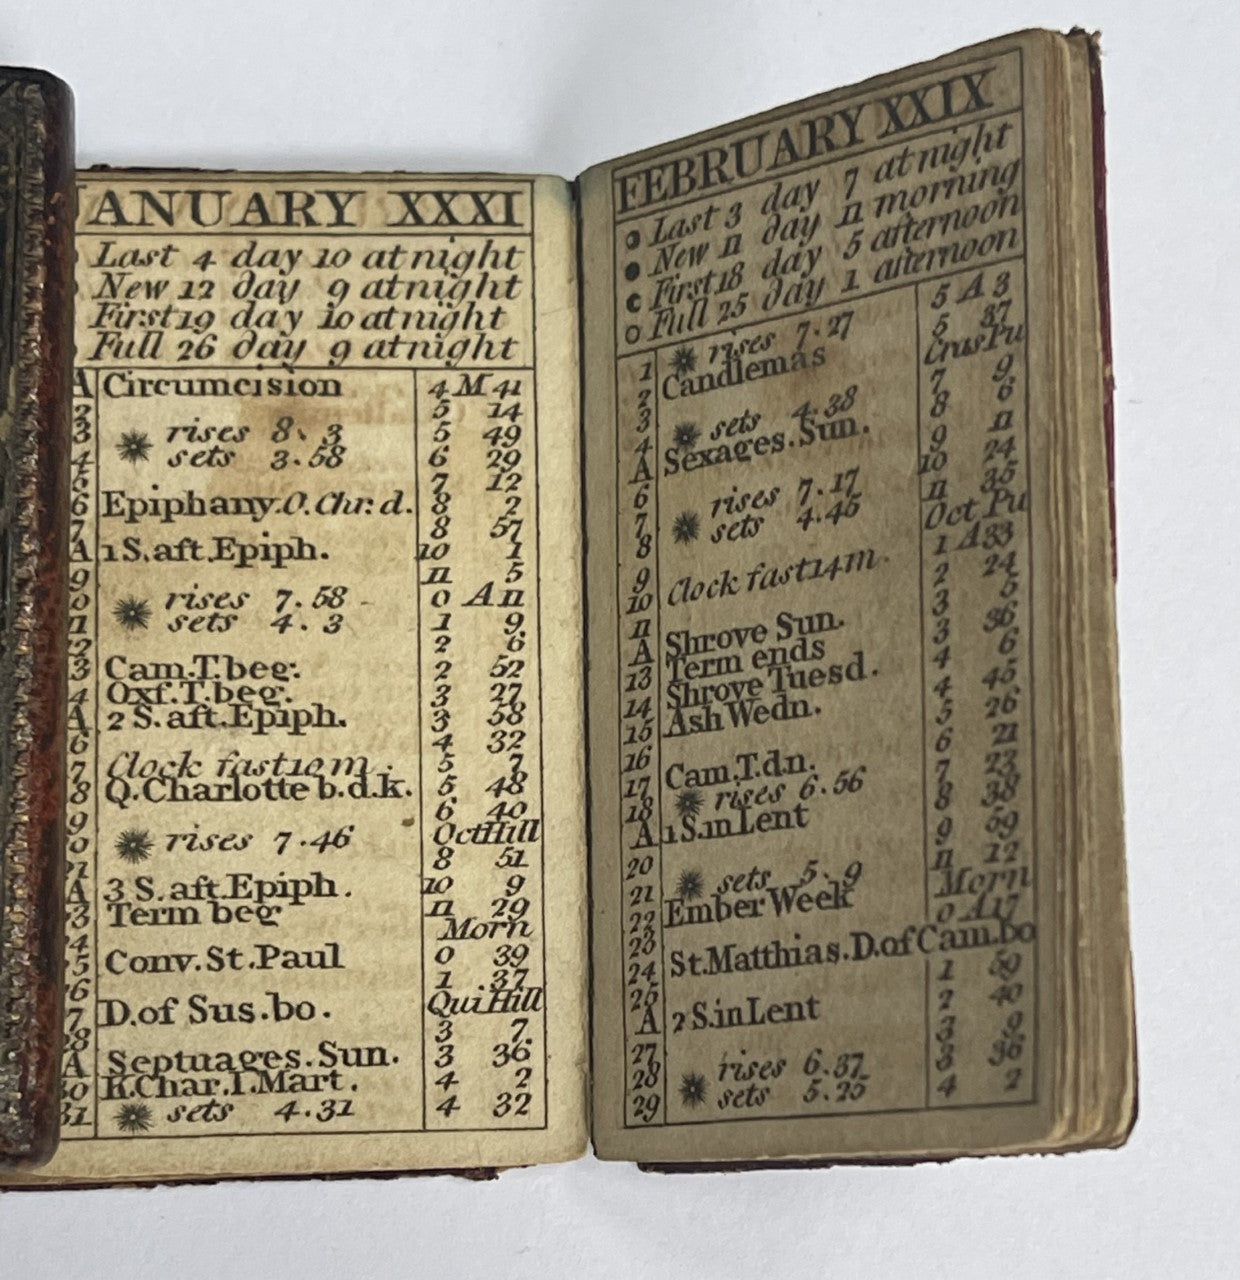 JANUARY XXXI
Last 4 day 10 at night
New 12 day 9 at night
First 19 day 10 at night
Full 26 day 9 at night
A Circumcision 4 M 41
2 5 14
3 rises 8. 3 5 49
4 sets 3.58 6 29
5 7 12
6 Epiphany.O.Chr.d. 8 2
7 8 57
A 1 S.aft.Epiph. 10 1
9 11 5
0 rises 7.58 0 A 11
11 sets 4. 3 1 9
12 2 6
3 Cam.T.beg. 2 52
4 Oxf.T.beg. 3 27
A 2 S.aft.Epiph. 3 58
6 4 32
7 Clock fast 10 m. 5 7
8 Q.Charlotte b.d.k. 5 48
9 6 40
0 rises 7.46 Oct Hill
21 8 51
A 3 S.aft.Epiph. 10 9
3 Term beg 11 29
24 Morn
25 Conv.St.Paul 0 39
26 1 37
7 D.of Sus.bo. Qui Hill
28 3 7
A Septuages.Sun. 3 36
30 K.Char.I.Mart. 4 2
31 sets 4.31 4 32
FEBRUARY XXIX
Last 3 day 7 at night
New 11 day 11 morning
First 18 day 5 afternoon
Full 25 day 1 afternoon
1 rises 7.27 5 A 3
2 Candlemas 5 37
3 Cras Pu
4 sets 4.38 7 9
A Sexages.Sun. 8 6
6 9 11
7 rises 7.17 10 24
8 sets 4.45 11 35
9 Oct Pu
10 Clock fast 14 m. 1 A 33
11 2 24
A Shrove Sun. 3 5
13 Term ends 3 36
14 Shrove Tuesd. 4 6
15 Ash Wedn. 4 45
16 5 26
17 Cam.T.dn. 6 21
18 rises 6.56 7 23
A 1 S.in Lent 8 38
20 9
21 sets 5.9 11 12
22 Ember Week Morn
23 0 A 17
24 St.Matthias.D.of Cam.bo
25 1
A 2 S.in Lent 2 40
27 3
28 rises 6.37 3 36
29 sets 5.25 4 2